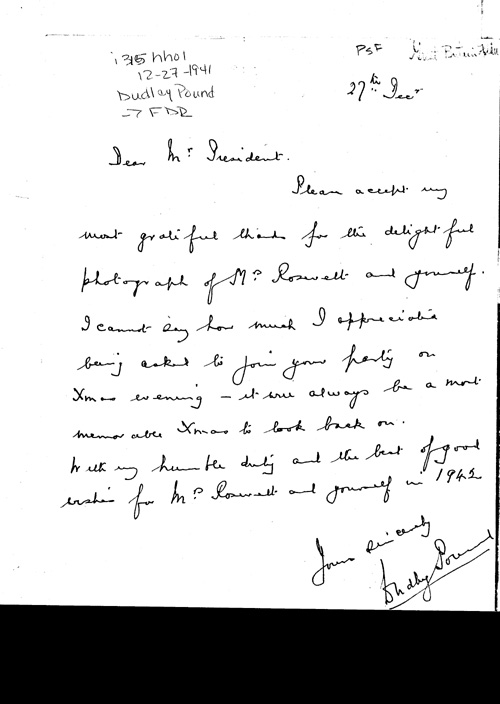 i315hh01
PSF
12-27-1941
Dudley Pound
→ FDR
27th Decr
Dear Mr President.
Please accept my
most grateful thanks for the delightful
photograph of Mrs Rosevelt and yourself.
I cannot say how much I appreciate
being asked to join your party on
Xmas evening – it will always be a most
memorable Xmas to look back on.
With my humble duty and the best of good
wishes for Mrs Rosevelt and yourself in 1942
Yours sincerely
Dudley Pound